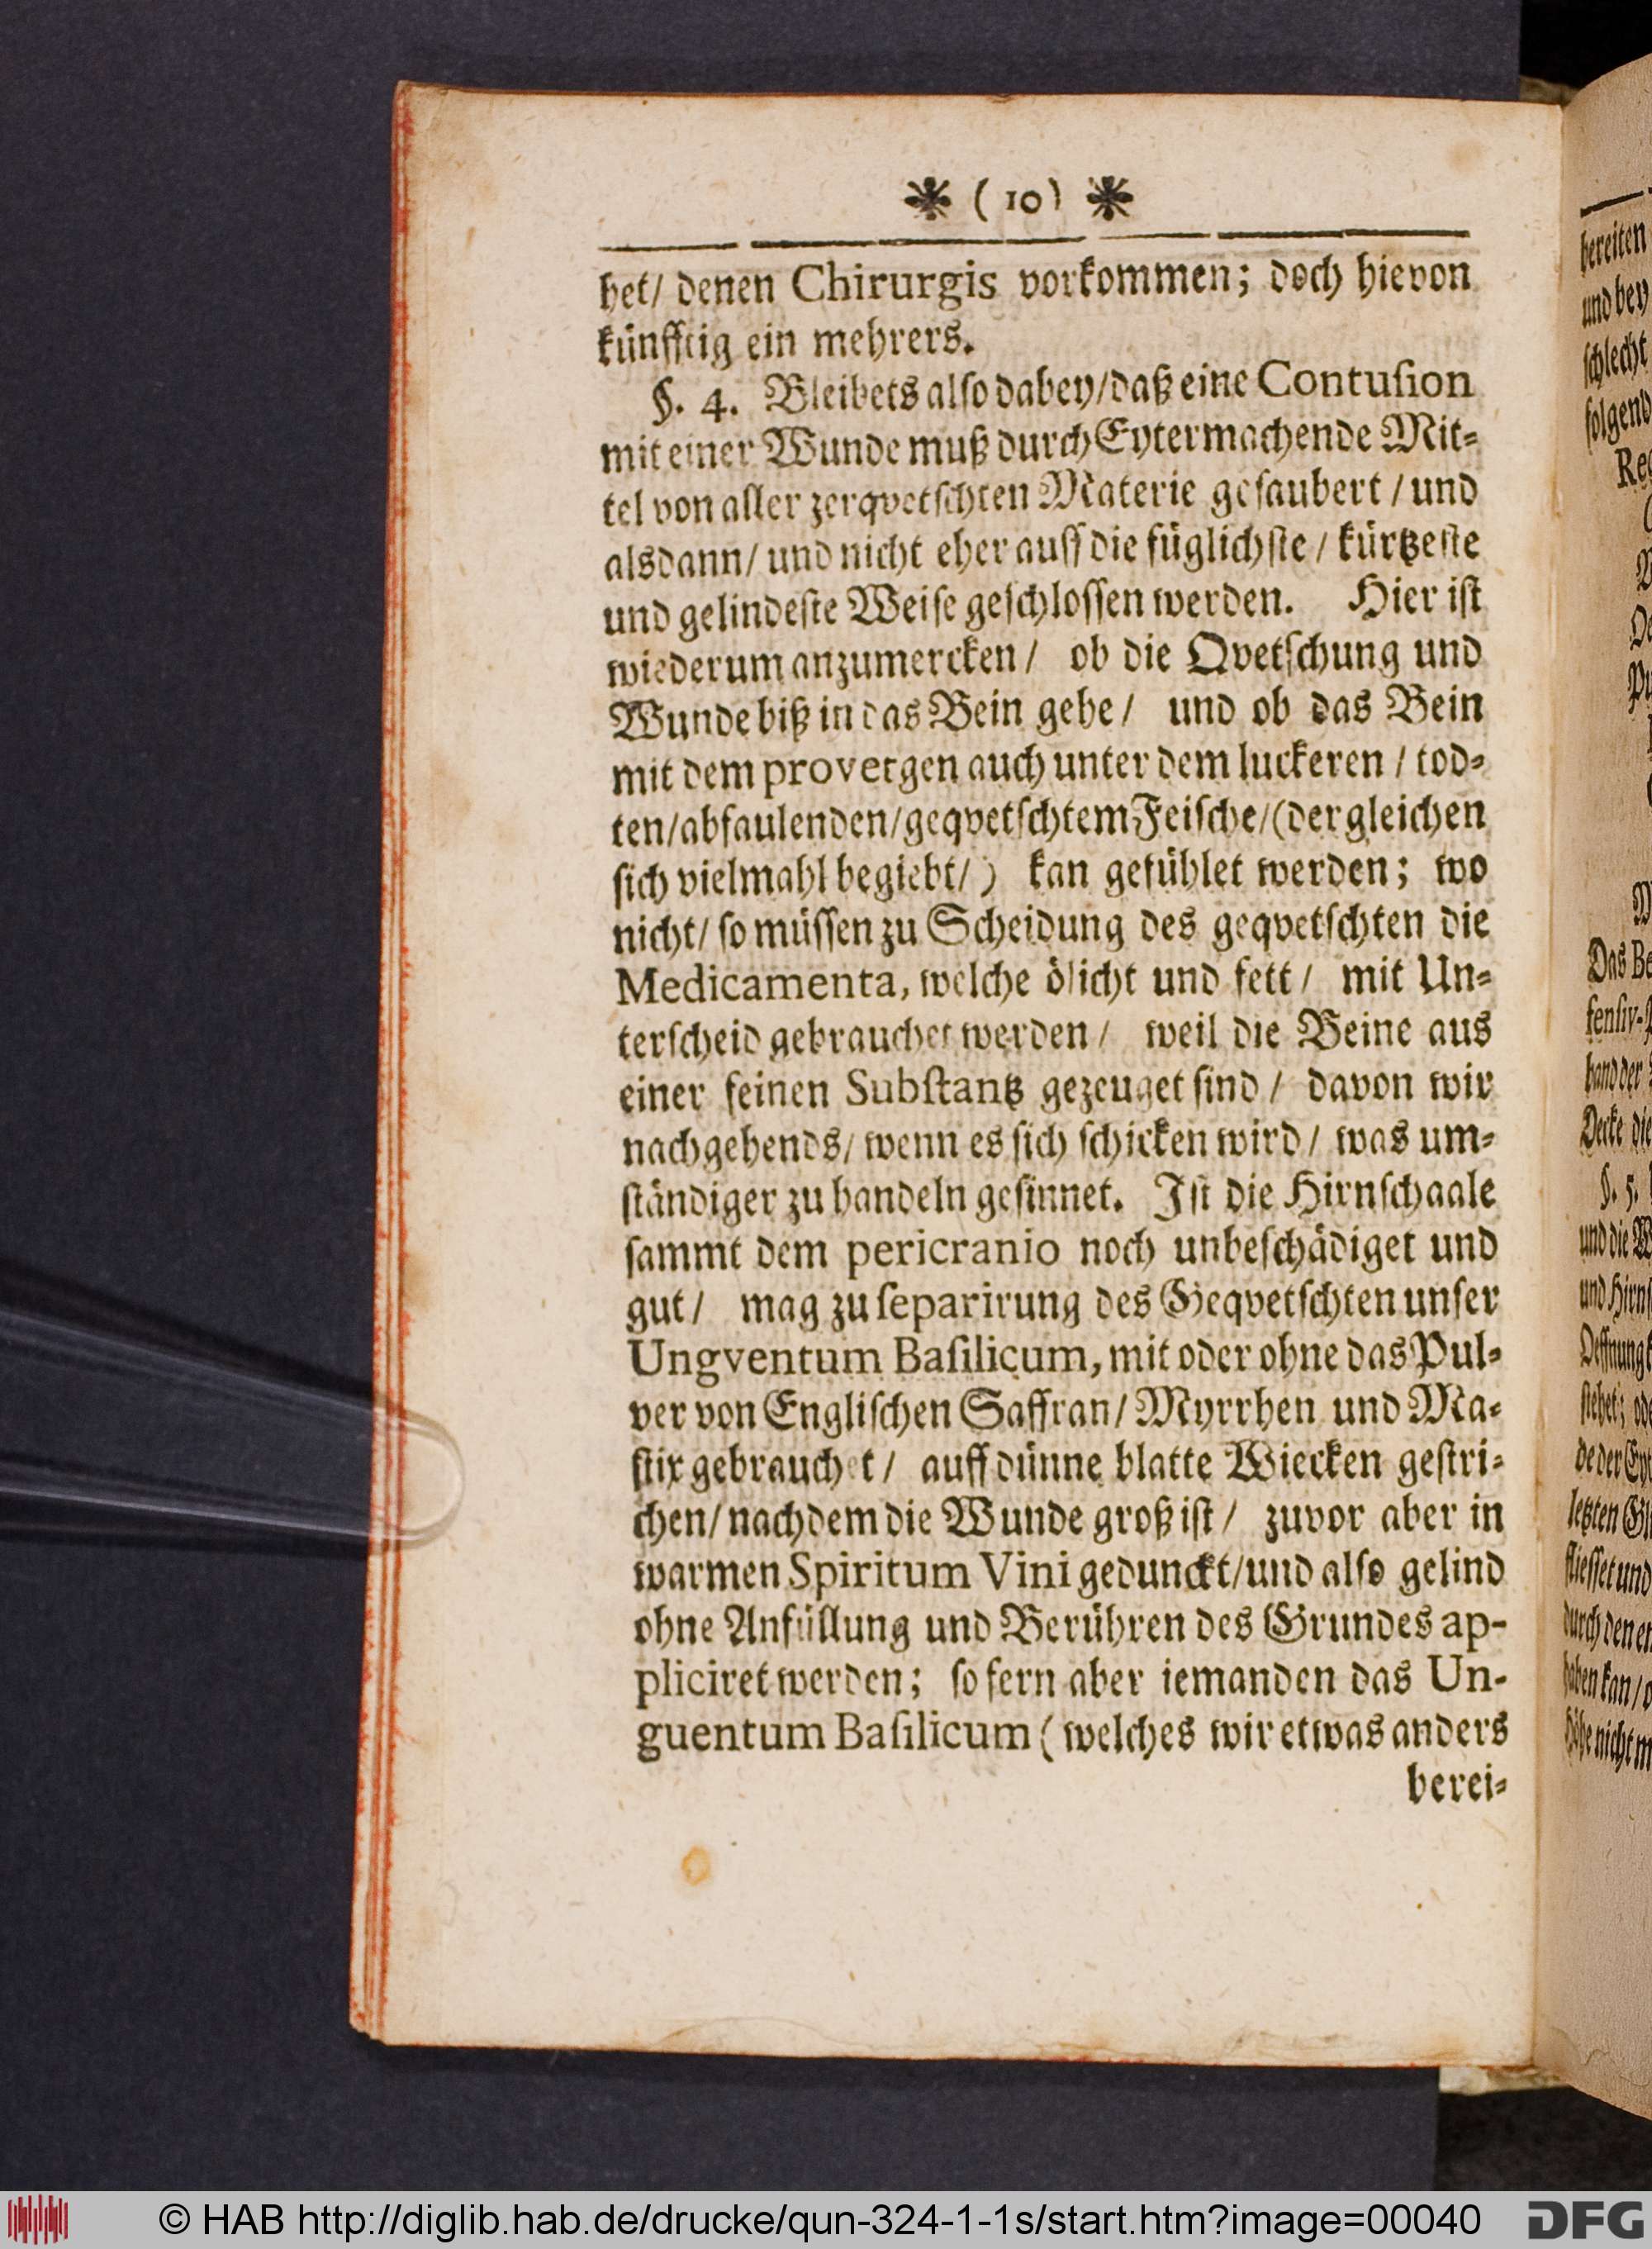 * ( 10 ) *
het/ denen Chirurgis vorkommen; doch hievon
künfftig ein mehrers.
§. 4. Bleibets also dabey/daß eine Contuſion
mit einer Wunde muß durch Eytermachende Mit-
tel von aller zerqvetſchten Materie geſaubert / und
alsdann/ und nicht eher auff die füglichſte / kürtzeſte
und gelindeſte Weiſe geſchloſſen werden. Hier iſt
wiederum anzumercken / ob die Qvetſchung und
Wunde biß in das Bein gehe / und ob das Bein
mit dem provetgen auch unter dem luckeren / tod-
ten/abfaulenden/geqvetſchtem Feiſche/(dergleichen
ſich vielmahl begiebt/) kan gefühlet werden; wo
nicht/ ſo müſſen zu Scheidung des geqvetſchten die
Medicamenta, welche ölicht und fett / mit Un-
terſcheid gebrauchet werden / weil die Beine aus
einer feinen Subſtantz gezeuget ſind / davon wir
nachgehends/ wenn es ſich ſchicken wird / was um-
ſtändiger zu handeln geſinnet. Iſt die Hirnſchaale
ſammt dem pericranio noch unbeſchädiget und
gut / mag zu ſeparirung des Geqvetſchten unſer
Ungventum Baſilicum, mit oder ohne das Pul-
ver von Engliſchen Saffran/ Myrrhen und Ma-
ſtix gebrauchet / auff dünne blatte Wiecken geſtri-
chen/ nachdem die Wunde groß iſt / zuvor aber in
warmen Spiritum Vini gedunckt/und alſo gelind
ohne Anfüllung und Berühren des Grundes ap-
pliciret werden; ſo fern aber iemanden das Un-
guentum Baſilicum ( welches wir etwas anders
berei-
bereiten
und bey
ſchlecht
Das
Decke die
§. 5.
und die
letzten
flieſſet und
haben kan /
© HAB http://diglib.hab.de/drucke/qun-324-1-1s/start.htm?image=00040
DFG